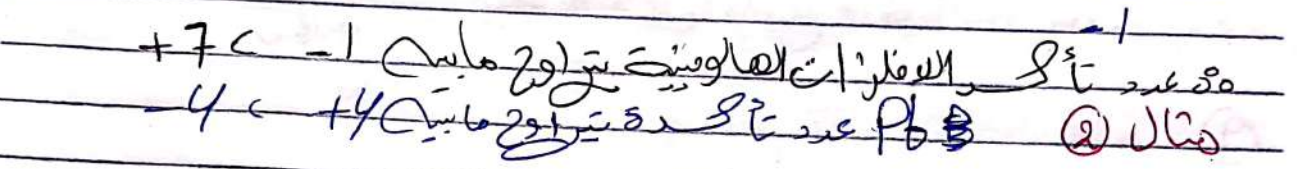 -1
مثل عدد تأكسد اللافلزات الهالوجينية يتراوح مابين 1- > 7+
مثال ② Pb عدد تأكسدة يتراوح مابين 4+ > 4-